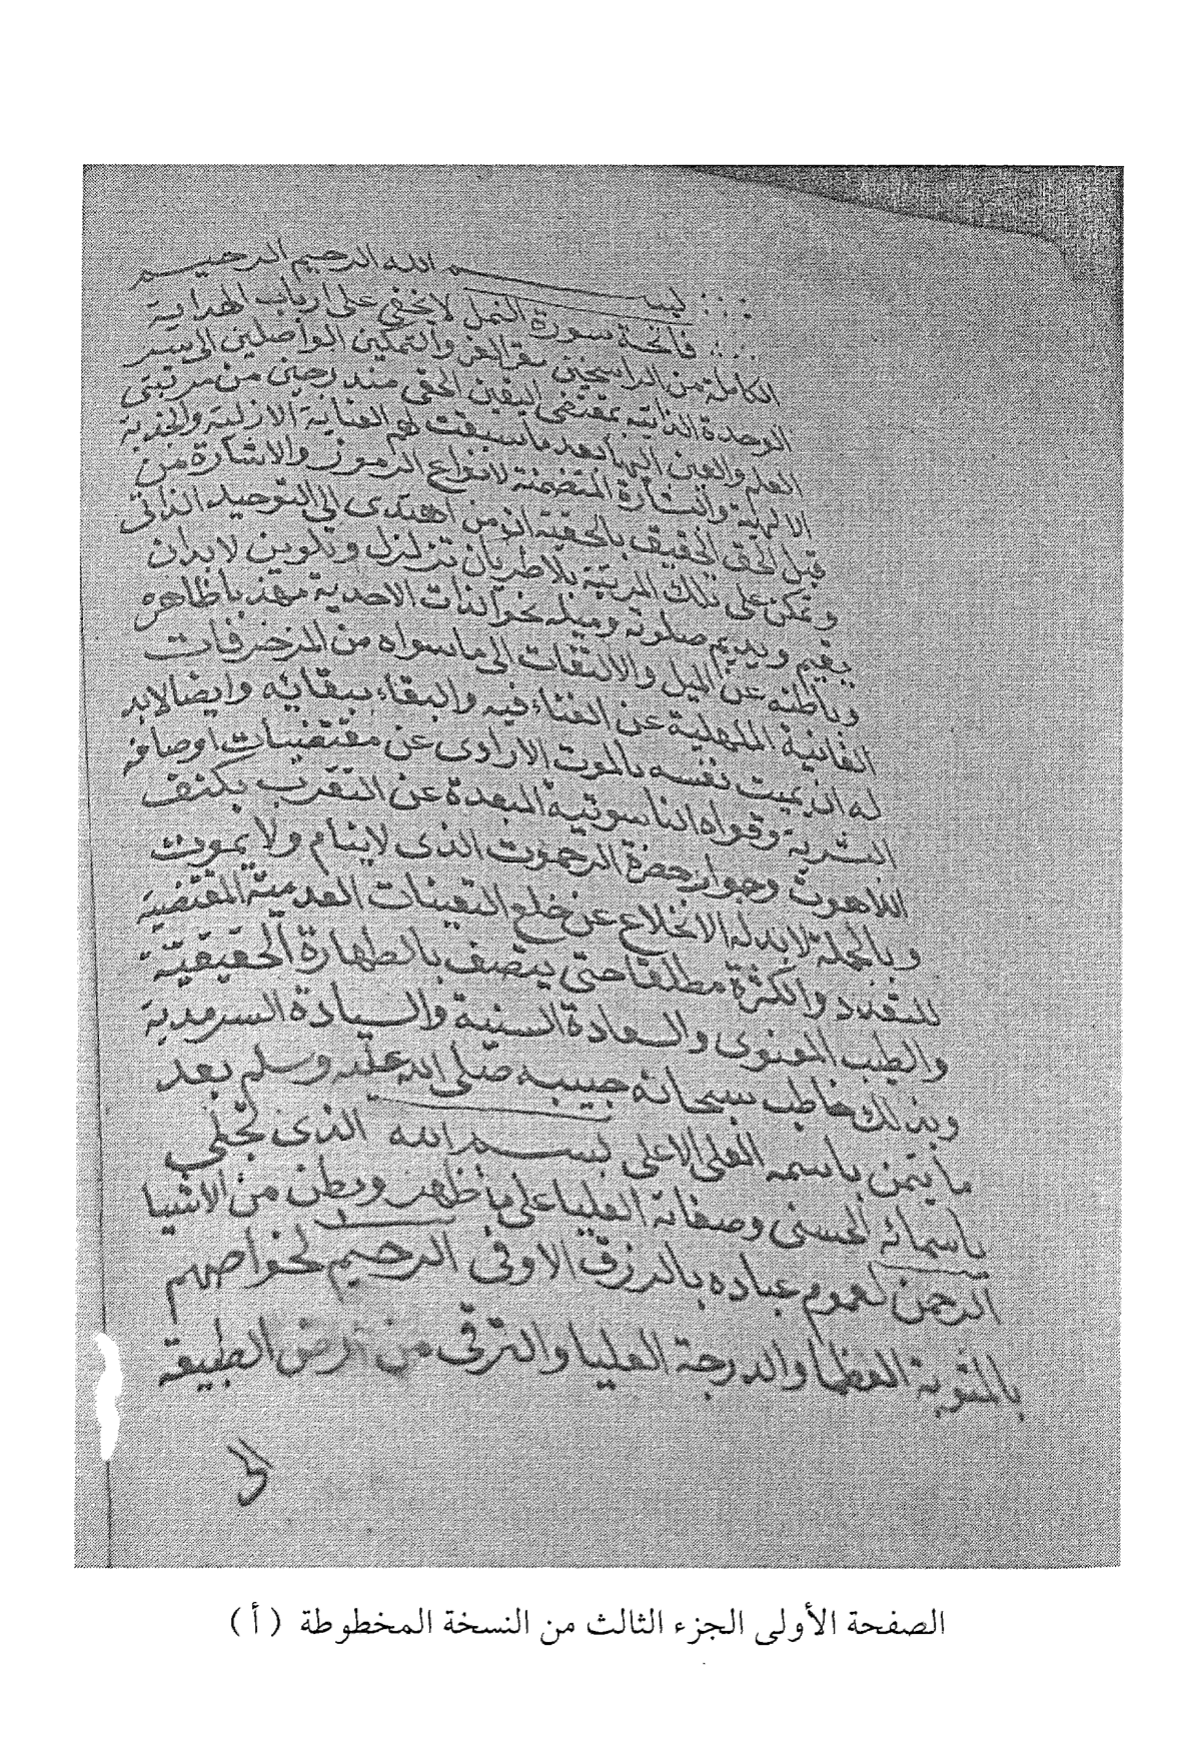 بسم الله الرحمن الرحيم
فاتحة سورة النمل لا يخفى على ارباب الهداية
الكاملة من الراسخين مقر العز والتمكين الواصلين الى سر
الوحدة الذاتية بمقتضى اليقين الحقى مندرجين من مرتبتى
العلم والعين اليها بعد ما سبقت لهم العناية الازلية والجذبة
الالهية والبشارة المتضمنة لانواع الرموز والاشارة من
قبل الحق الحقيق بالحقية ان من اهتدى الى التوحيد الذاتى
وتمكن على تلك المرتبة بلا طريان تزلزل وتلوين لابد ان
يقيم ويديم صلوته وميله نحو الذات الاحدية مهذبا ظاهره
وباطنه عن الميل والالتفات الى ما سواه من المزخرفات
الفانية الملهية عن الفناء فيه والبقاء ببقائه وايضا لابد
له ان يميت نفسه بالموت الارادى عن مقتضيات اوصافه
البشرية وقواه الناسوتية المبعدة عن التقرب بكنف
اللاهوت وجوار حضرة الرحموت الذى لا ينام ولا يموت
وبالجملة لابد له الانخلاع عن خلع التعينات العدمية المقتضية
للتعدد والكثرة مطلقا حتى يتصف بالطهارة الحقيقية
والطيب المعنوى والسعادة السنية والسيادة السرمدية
وبذلك خاطب سبحانه حبيبه صلى الله عليه وسلم بعد
ما يتمن باسمه العلى الاعلى بسم الله الذى تجلى
باسمائه الحسنى وصفاته العليا على ما ظهر وبطن من الاشيا
الرحمن لعموم عباده بالرزق الاوفى الرحيم لخواصهم
بالمثوبة العظما والدرجة العليا والترقى من ارض الطبيعة
الى
الصفحة الأولى الجزء الثالث من النسخة المخطوطة ( أ )